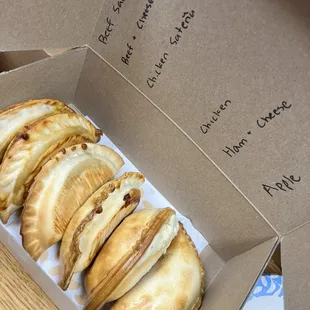 Beef
Beef + Cheese
Chicken
Chicken
Ham + Cheese
Apple